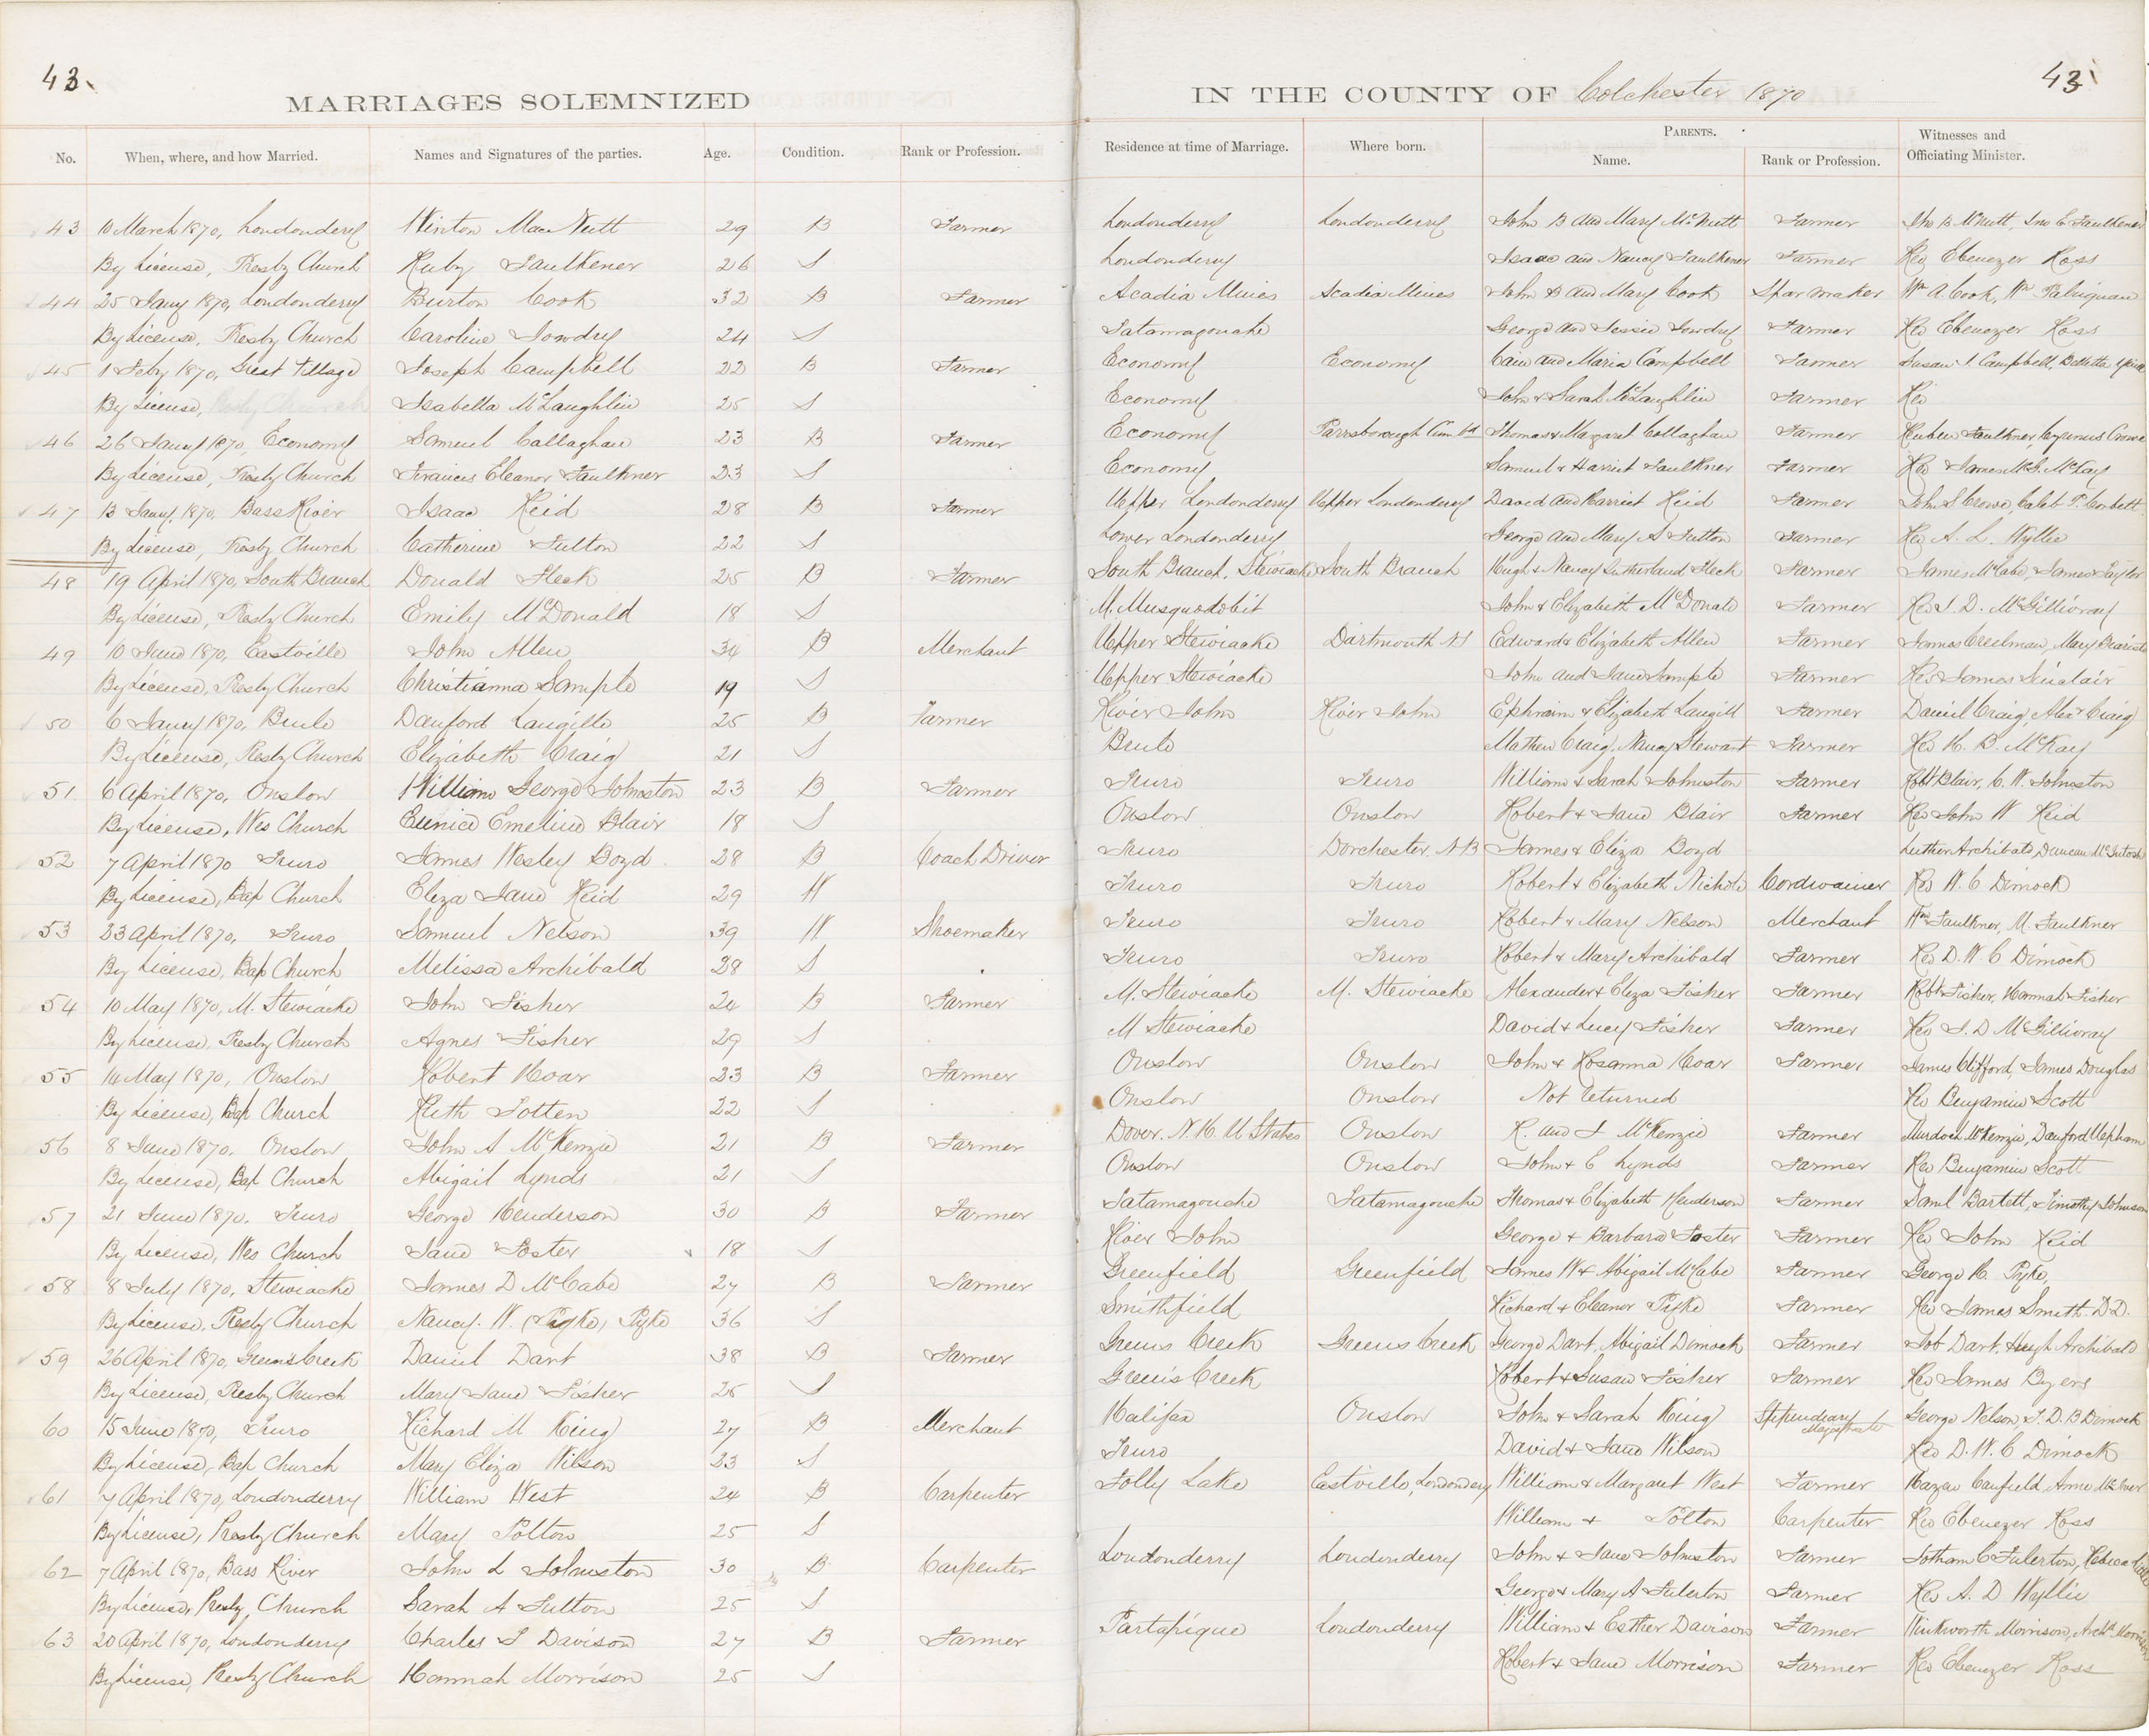 43.
MARRIAGES SOLEMNIZED
IN THE COUNTY OF Colchester 1870
43
No. When, where, and how Married. Names and Signatures of the parties. Age. Condition. Rank or Profession. Residence at time of Marriage. Where born. PARENTS. Name. Rank or Profession. Witnesses and Officiating Minister.
43 10 March 1870, Londonderry Winton MacNutt 29 B Farmer Londonderry Londonderry John B and Mary McNutt Farmer Jno B McNutt, Jno C Faulkener
By License, Presby Church Ruby Faulkener 26 S Londonderry Isaac and Nancy Faulkener Farmer Rev Ebenezer Ross
44 25 Jany 1870, Londonderry Burton Cook 32 B Farmer Acadia Mines Acadia Mines John B and Mary Cook Spar maker Wm A. Cook, Wm
By License, Presby Church Caroline Lowdry 24 S Tatamagouche George and Jessie Lowdry Farmer Rev Ebenezer Ross
45 1 Feby 1870, Great Village Joseph Campbell 22 B Farmer Economy Economy Cain and Maria Campbell Farmer Susan J. Campbell,
By License, Presby Church Isabella McLaughlin 25 S Economy John & Sarah McLaughlin Farmer Rev
46 26 Jany 1870, Economy Samuel Callaghan 23 B Farmer Economy Parrsborough Cumbd Thomas & Margaret Callaghan Farmer Ruben Faulkner, Cyrenus Crowe
By License, Presby Church Frances Eleanor Faulkner 23 S Economy Samuel & Harriet Faulkner Farmer Rev James McG. McKay
47 13 Jany. 1870. Bass River Isaac Reid 28 B Farmer Upper Londonderry Upper Londonderry David and Harriet Reid Farmer John S Crowe, Caleb P. Corbett
By License, Presby Church Catherine Fulton 22 S Lower Londonderry George and Mary A Fulton Farmer Rev A. L. Wyllie
48 19 April 1870, South Branch Donald Fleck 25 B Farmer South Branch, Stewiacke South Branch Hugh & Nancy Sutherland Fleck Farmer James McCabe, James Taylor
By License, Presby Church Emily McDonald 18 S M. Musquodobit John & Elizabeth McDonald Farmer Rev J. D. McGillivray
49 10 June 1870, Eastville John Allen 34 B Merchant Upper Stewiacke Dartmouth NS Edward & Elizabeth Allen Farmer James Creelman, Mary
By License, Presby Church Christianna Sample 19 S Upper Stewiacke John and Jane Sample Farmer Rev James Sinclair
50 6 Jany 1870, Brule Danford Langille 25 B Farmer River John River John Ephraim & Elizabeth Langill Farmer Daniel Craig, Alexr Craig
By License, Presby Church Elizabeth Craig 21 S Brule Mathew Craig, Nancy Stewart Farmer Rev H. B. McKay
51. 6 April 1870, Onslow William George Johnston 23 B Farmer Truro Truro William & Sarah Johnston Farmer Robt Blair, C. W. Johnston
By License, Wes Church Eunice Emeline Blair 18 S Onslow Onslow Robert & Jane Blair Farmer Rev John W Reid
52 7 April 1870 Truro James Wesley Boyd 28 B Coach Driver Truro Dorchester NB James & Eliza Boyd Luther Archibald, Duncan McIntosh
By License, Bap Church Eliza Jane Reid 29 W Truro Truro Robert & Elizabeth Nichols Cordwainer Rev W. C Dimock
53 23 April 1870, Truro Samuel Nelson 39 W Shoemaker Truro Truro Robert & Mary Nelson Merchant Wm Faulkner, M. Faulkner
By License, Bap Church Melissa Archibald 28 S Truro Truro Robert & Mary Archibald Farmer Rev D. W C Dimock
54 10 May 1870, M. Stewiacke John Fisher 24 B Farmer M. Stewiacke M. Stewiacke Alexander & Eliza Fisher Farmer Robt Fisher, Hannah Fisher
By License, Presby Church Agnes Fisher 29 S M Stewiacke David & Lucy Fisher Farmer Rev J. D McGillivray
55 14 May 1870, Onslow Robert Hoar 23 B Farmer Onslow Onslow John & Rosanna Hoar Farmer James Clifford, James Douglas
By License, Bap Church Ruth Totten 22 S Onslow Onslow Not returned Rev Benjamin Scott
56 8 June 1870. Onslow John A McKenzie 21 B Farmer Dover. N.H. U States Onslow R. and J McKenzie Farmer Murdoch McKenzie, Danford Upham
By License, Bap Church Abigail Lynds 21 S Onslow Onslow John & C Lynds Farmer Rev Benjamin Scott
57 21 June 1870. Truro George Henderson 30 B Farmer Tatamagouche Tatamagouche Thomas & Elizabeth Henderson Farmer Saml Bartlett, Timothy Johnson
By License, Wes Church Jane Foster 18 S River John George & Barbara Foster Farmer Rev John Reid
58 8 July 1870, Stewiacke James D McCabe 27 B Farmer Greenfield Greenfield James W & Abigail McCabe Farmer George R. Pyke,
By License, Presby Church Nancy. W. (Pyke) Pyke 36 S Smithfield Richard & Eleanor Pyke Farmer Rev James Smith D.D.
59 26 April 1870, Greens Creek Daniel Dart 38 B Farmer Greens Creek Greens Creek George Dart, Abigail Dimock Farmer Job Dart, Hugh Archibald
By License, Presby Church Mary Jane Fisher 26 S Greens Creek Robert & Susan Fisher Farmer Rev James Byers
60 15 June 1870, Truro Richard M King 27 B Merchant Halifax Onslow John & Sarah King Stipendiary Magistrate George Nelson, J. D. B Dimock
By License, Bap Church Mary Eliza Wilson 23 S Truro David & Jane Wilson Rev D. W. C Dimock
61 7 April 1870, Londonderry William West 24 B Carpenter Folly Lake Eastville, Londonderry William & Margaret West Farmer Hazen Canfield,
By License, Presby Church Mary Polton 25 S William & Polton Carpenter Rev Ebenezer Ross
62 7 April 1870, Bass River John L Johnston 30 B Carpenter Londonderry Londonderry John & Jane Johnston Farmer Jotham C Fulerton, Rebecca
By License, Presby, Church Sarah A Fulton 25 S George & Mary A Fulerton Farmer Rev A. D Wyllie
63 20 April 1870, Londonderry Charles S Davison 27 B Farmer Partapique Londonderry William & Esther Davison Farmer Winkworth Morrison, Archd Morrison
By License, Presby Church Hannah Morrison 25 S Robert & Jane Morrison Farmer Rev Ebenezer Ross